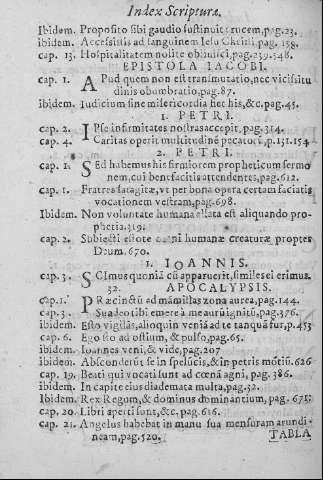 Index Scripturæ.
Ibidem. Proposito sibi gaudio sustinuit crucem, pag.23.
ibidem. Accessistis ad sanguinem Iesu Christi, pag. 158.
cap. 13. Hospitalitatem nolite obliuisci, pag. 239.548.
EPISTOLA IACOBI.
cap. 1. APud quem non est transmutatio, nec vicissitu
dinis obumbratio, pag.87.
ibidem. Iudicium sine misericordia hec his, &c. pag.45.
1. PETRI.
cap. 2. IPse infirmitates nostras accepit, pag.314.
cap. 4. Caritas operit multitudinē pecatorū, p.131.154
2. PETRI.
cap. 1. SEd habemus his firmiorem propheticum sermo
nem, cui benefacitis attendentes, pag.612.
cap. 1. Fratres satagitæ, vt per bona opera certam faciatis
vocationem vestram, pag.698.
Ibidem. Non voluntate humana allata est aliquando pro-
phetia.319.
cap. 2. Subiecti estote omni humanæ creaturæ propter
Deum.670.
1. IOANNIS.
cap. 3. SCImus quoniā cū apparuerit, similes ei erimus.
32. APOCALYPSIS.
cap.1. PRæcinctū ad mamillas zona aurea, pag.144.
cap. 3. Suadeo tibi emere à me aurū ignitū, pag.376.
ibidem. Esto vigilās, alioquin veniā ad te tanquā fur, p.453
cap. 6. Ego sto ad ostium, & pulso, pag.65.
ibidem. Ioannes veni, & vide, pag.207
ibidem. Absconderūt se in speluncis, & in petris mōtiū.626
cap. 19. Beati qui vocati sunt ad cœnā agni, pag. 386.
ibidem. In capite eius diademata multa, pag.32.
Ibidem. Rex Regum, & dominus dominantium, pag. 675.
cap. 20. Libri aperti sunt, &c. pag.616.
cap. 21. Angelus habebat in manu sua mensuram arundi-
neam, pag.520. TABLA